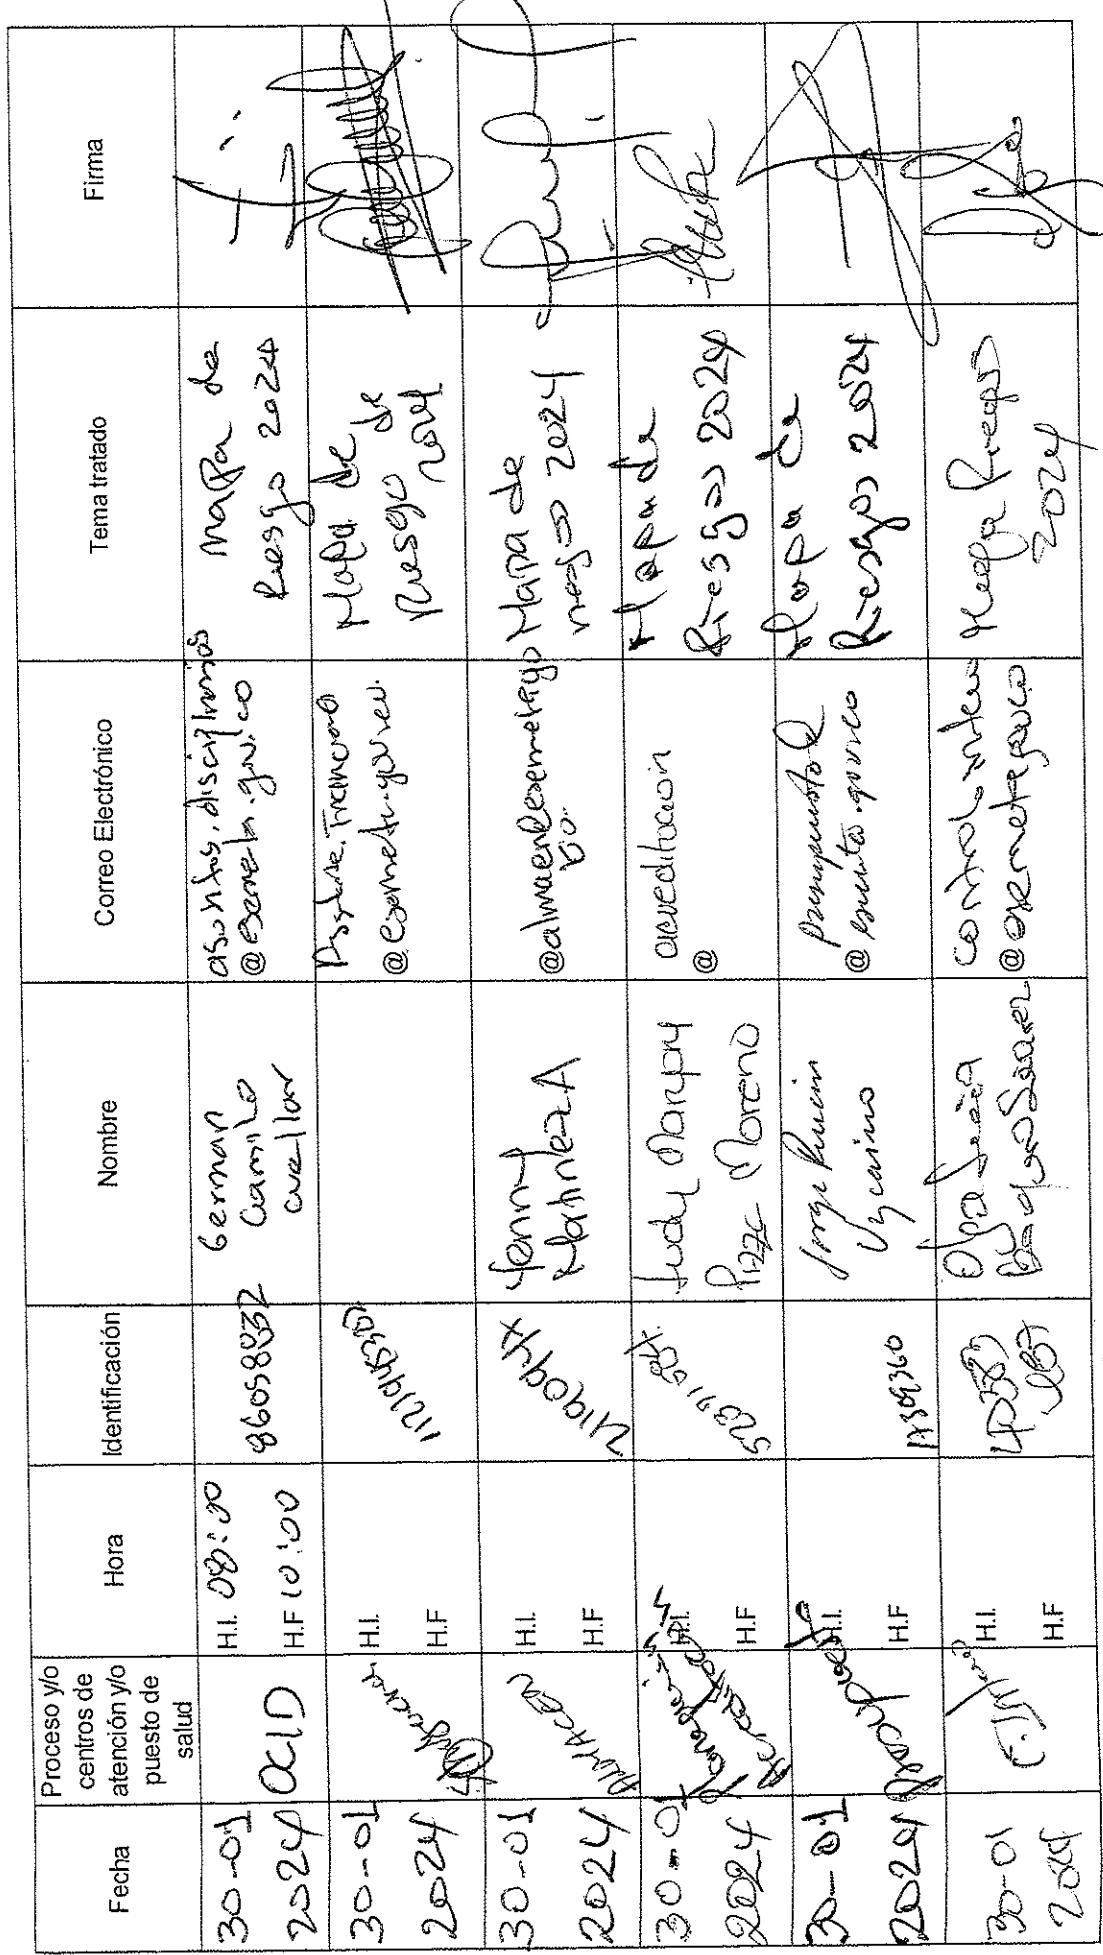 Fecha
Proceso y/o
centros de
atención y/o
puesto de
salud
Hora
Identificación
Nombre
Correo Electrónico
Tema tratado
Firma
30-01
2024
OCID
H.I. 08:00
H.F 10:00
86058832
German
Camilo
Cuellar
asuntos.disciplinarios
@esemeta.gov.co
Mapa de
Riesgo 2024
30-01
2024
H.I.
H.F
@esemeta.gov.co
Mapa de
Riesgo de
2024
30-01
2024
ALMACEN
H.I.
H.F
Yenny
Martinez A
@almacenesemetago
Mapa de
riesgo 2024
30-01
2024
H.I.
H.F
Judy Maryory
Moreno
acreditacion
@
Mapa de
Riesgos 2024
30-01
2024
Presupuesto
H.I.
H.F
17309360
Jorge
Vizcaino
presupuesto
@esemeta.gov.co
Mapa de
Riesgos 2024
30-01
2024
C. Interno
H.I.
H.F
Olga Lucia
Baquero Suarez
control interno
@esemeta.gov.co
Mapa Riesgos
2024